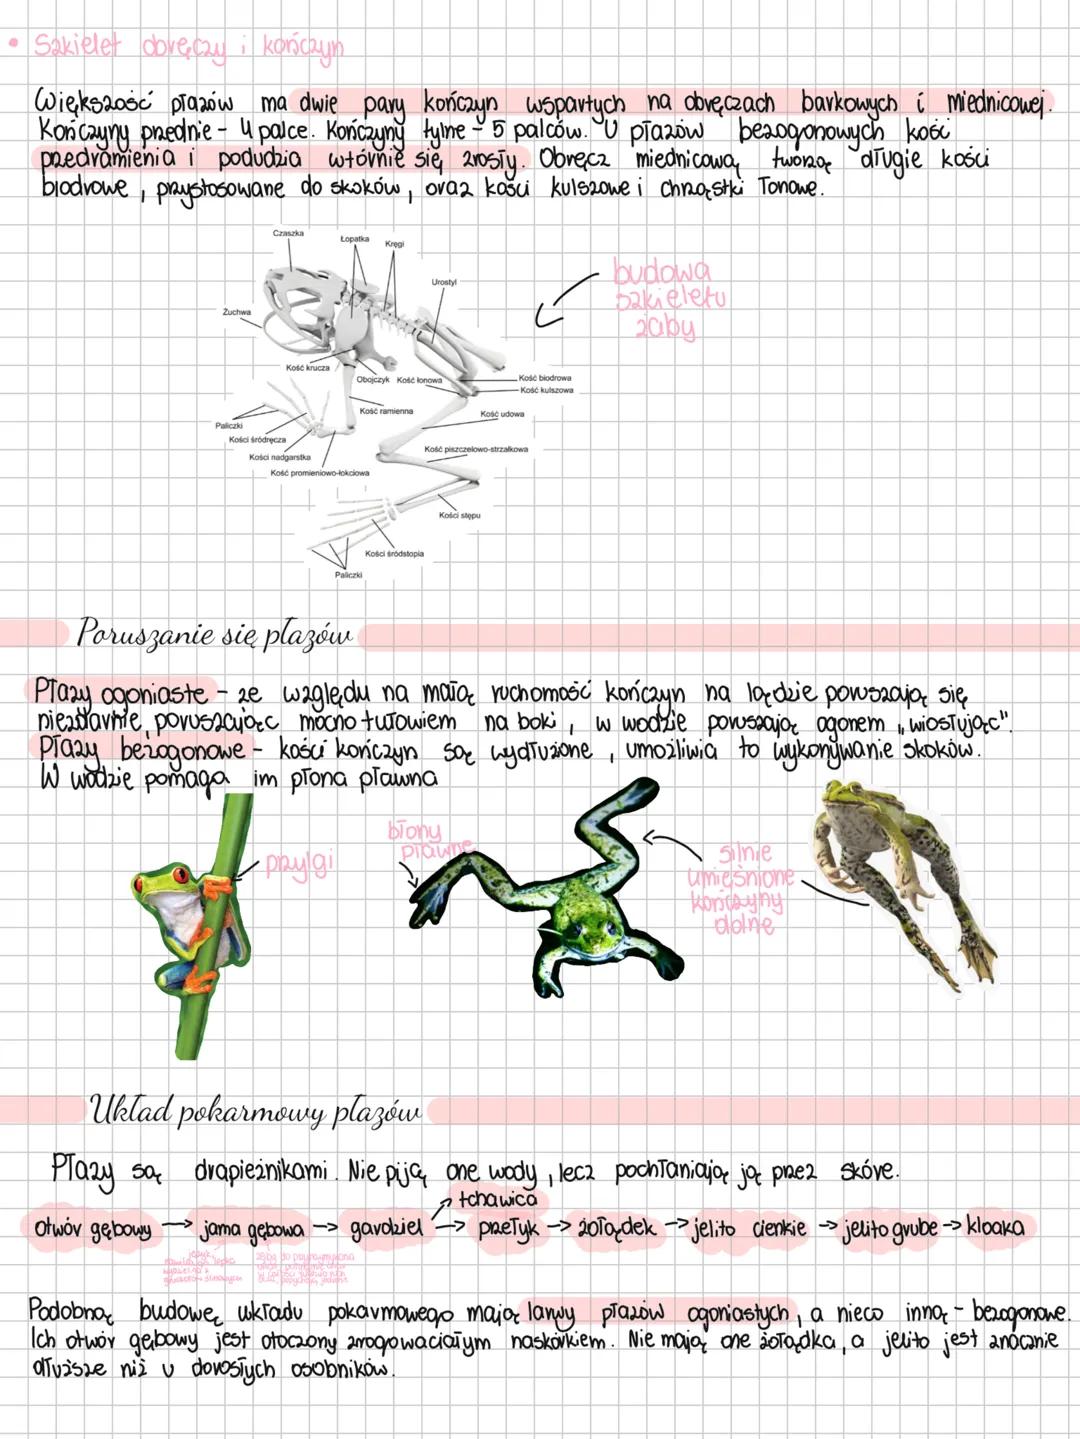 • Szkielet obręczy i kończyn
Większość płazów ma dwie pary kończyn wspartych na obręczach barkowych i miednicowej.
Kończyny przednie - 4 palce. Kończyny tylne - 5 palców. U płazów bezogonowych kości
przedramienia i podudzia wtórnie się zrosły. Obręcz miednicową tworzą długie kości
biodrowe, przystosowane do skoków, oraz kości kulszowe i chrząstki łonowe.
Czaszka
Łopatka
Kręgi
Urostyl
budowa
szkieletu
żaby
Żuchwa
Kość krucza
Obojczyk
Kość łonowa
Kość biodrowa
Kość kulszowa
Kość ramienna
Kość udowa
Paliczki
Kości śródręcza
Kości nadgarstka
Kość piszczelowo-strzałkowa
Kość promieniowo-łokciowa
Kości stępu
Kości śródstopia
Paliczki
Poruszanie się płazów
Płazy ogoniaste - ze względu na małą ruchomość kończyn na lądzie poruszają się
niezdarnie, poruszając mocno tułowiem na boki, w wodzie poruszają ogonem „wiosłując".
Płazy bezogonowe - kości kończyn są wydłużone, umożliwia to wykonywanie skoków.
W wodzie pomaga im płona pławna
przylgi
błony
pławne
silnie
umięśnione
kończyny
dolne
Układ pokarmowy płazów
Płazy są drapieżnikami. Nie piją one wody, lecz pochłaniają ją przez skórę.
tchawica
otwór gębowy → jama gębowa → gardziel → przełyk → żołądek → jelito cienkie → jelito grube → kloaka
język,
Podobną budowę układu pokarmowego mają larwy płazów ogoniastych, a nieco inną - bezogonowe.
Ich otwór gębowy jest otoczony zrogowaciałym naskórkiem. Nie mają one żołądka, a jelito jest znacznie
dłuższe niż u dorosłych osobników.